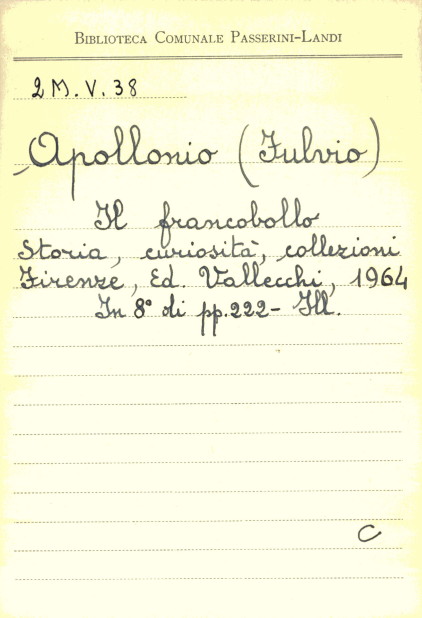 BIBLIOTECA COMUNALE PASSERINI-LANDI
2 M. V. 38
Apollonio (Fulvio)
Il francobollo
Storia, curiosità, collezioni
Firenze, Ed. Vallecchi, 1964
In 8° di pp. 222 - Ill.
C